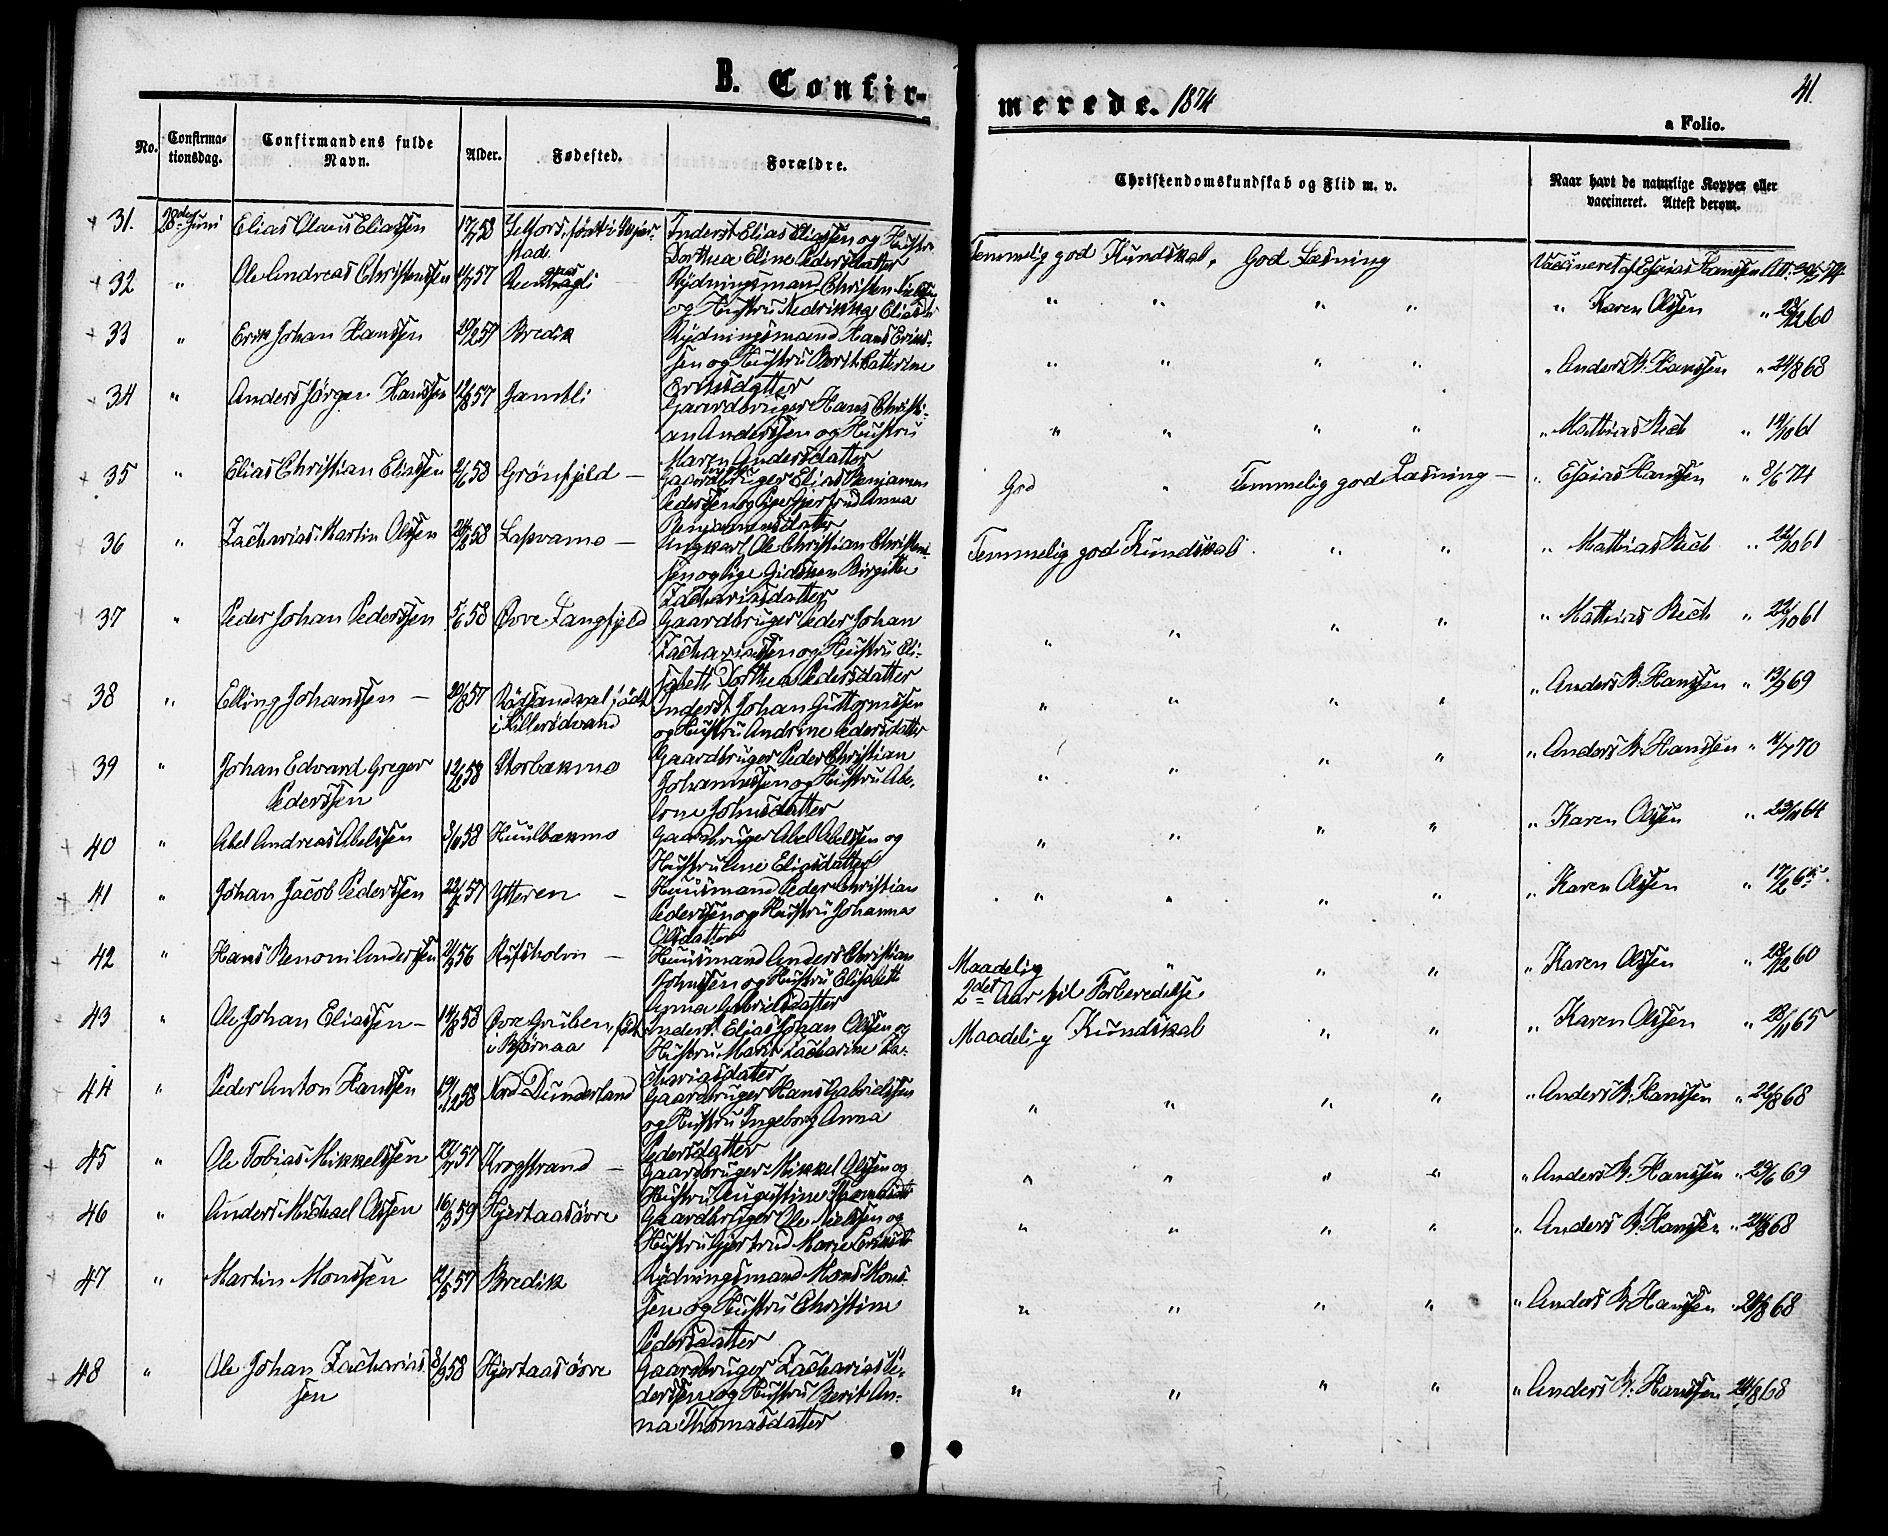 B. Confir-
merede. 1874
41.
a Folio.
No.
Confirma-
tionsdag.
Confirmandens fulde
Navn.
Alder.
Fødested.
Forældre.
Christendomskundskab og Flid m. v.
Naar havt de naturlige Kopper eller
vaccineret. Attest derom.
31. 28de Juni Elias Olaus Eliassen Selfors, født i
stad Inderst Elias Eliassen og Hustru
Dorthea Eline Pedersdatter
Temmelig god Kundskab, God Læsning Vaccineret af Esaias Hanssen Att.
32 " Ole Andreas Christenssen Rydningsmand Christen
og Hustru
" " " " " Karen Olssen " 60
33 " Erik Johan Hanssen Bredik Rydningsmand Hans Eriks-
sen og Hustru Berit Catterine
Eriksdatter
" " " " " Anders B. Hanssen " 24/8 68
34 " Anders Jørgen Hanssen Jamtli Gaardbruger Hans Christi-
an Anderssen og Hustru
Maren Andersdatter
" " " " " Mathias Bech " 61
35 " Elias Christian Eliassen Grönfjeld — Gaardbruger Elias Benjamin
Pederssen og Pige Gjertrud Anna
Benjaminsdatter
God " Temmelig god Læsning — " Esaias Hanssen " 8/6 74
36 " Zacharias Martin Olssen Lasvamo — Ungkarl Ole Christian Christen-
sen og Pige Gidsken Birgitte
Zachariasdatter
Temmelig god Kundskab " " " Mathias Bech " 22/10 61
37 " Peder Johan Pederssen Øvre Langfjeld Gaardbruger Peder Johan
Zachariassen og Hustru Eli-
sabeth Dorthea Pedersdatter
" " " " " Mathias Bech " 22/10 61
38 " Elling Johanssen — født
i Inderst Johan Guttormssen
og Hustru Andrine Pedersdatter
" " " " " Anders B. Hanssen " 69
39 " Johan Edvard Greger
Pederssen Storbækmo Gaardbruger Peder Christian
Johannessen og Hustru Abe-
lone Johnsdatter
" " " " " Anders B. Hanssen " 70
40 " Abel Andreas Abelssen Kuulbækmo Gaardbruger Abel Abelssen og
Hustru Ane Eliasdatter
" " " " " Karen Olssen " 64
41 " Johan Jacob Pederssen Ytteren — Huusmand Peder Christian
Pederssen og Hustru Johanna
Olsdatter
" " " " " Karen Olssen " 17/2 65.
42 " Hans Benoni Anderssen Rufsholm — Huusmand Anders Christian
Johnssen og Hustru Elisabeth
Anna Gabrielsdatter
Maadelig " " " " Karen Olssen " 60
2det Aar til Forberedelse
43 " Ole Johan Eliassen — Øvre Gruben, født
i Bjørnaa Inderst Elias Johan Olssen og
Hustru Marit Zacharine Za-
chariasdatter
Maadelig Kundskab " " " Karen Olssen " 65
44 " Peder Anton Hanssen Nord-Dunderland Gaardbruger Hans Gabrielssen
og Hustru Ingeborg Anna
Pedersdatter
" " " " " Anders B. Hanssen " 22/8 68
45 " Ole Tobias Mikkelssen Krogstrand — Gaardbruger Mikkel Olssen og
Hustru Augustine
" " " " " Anders B. Hanssen " 29/6 69
46 " Anders Michael Olssen 16/3 59 Hjertaas øvre Gaardbruger Ole Nielssen og
Hustru Gjertrud Marie
" " " " " Anders B. Hanssen " 24/8 68
47 " Martin Monssen Bredik Rydningsmand Mons Mons-
sen og Hustru Christine
Pedersdatter
" " " " " Anders B. Hanssen " 24/8 68
48 " Ole Johan Zacharias-
sen Hjertaas øvre Gaardbruger Zacharias Pe-
derssen og Hustru Berit An-
na Thomasdatter
" " " " " Anders B. Hanssen 24/8 68